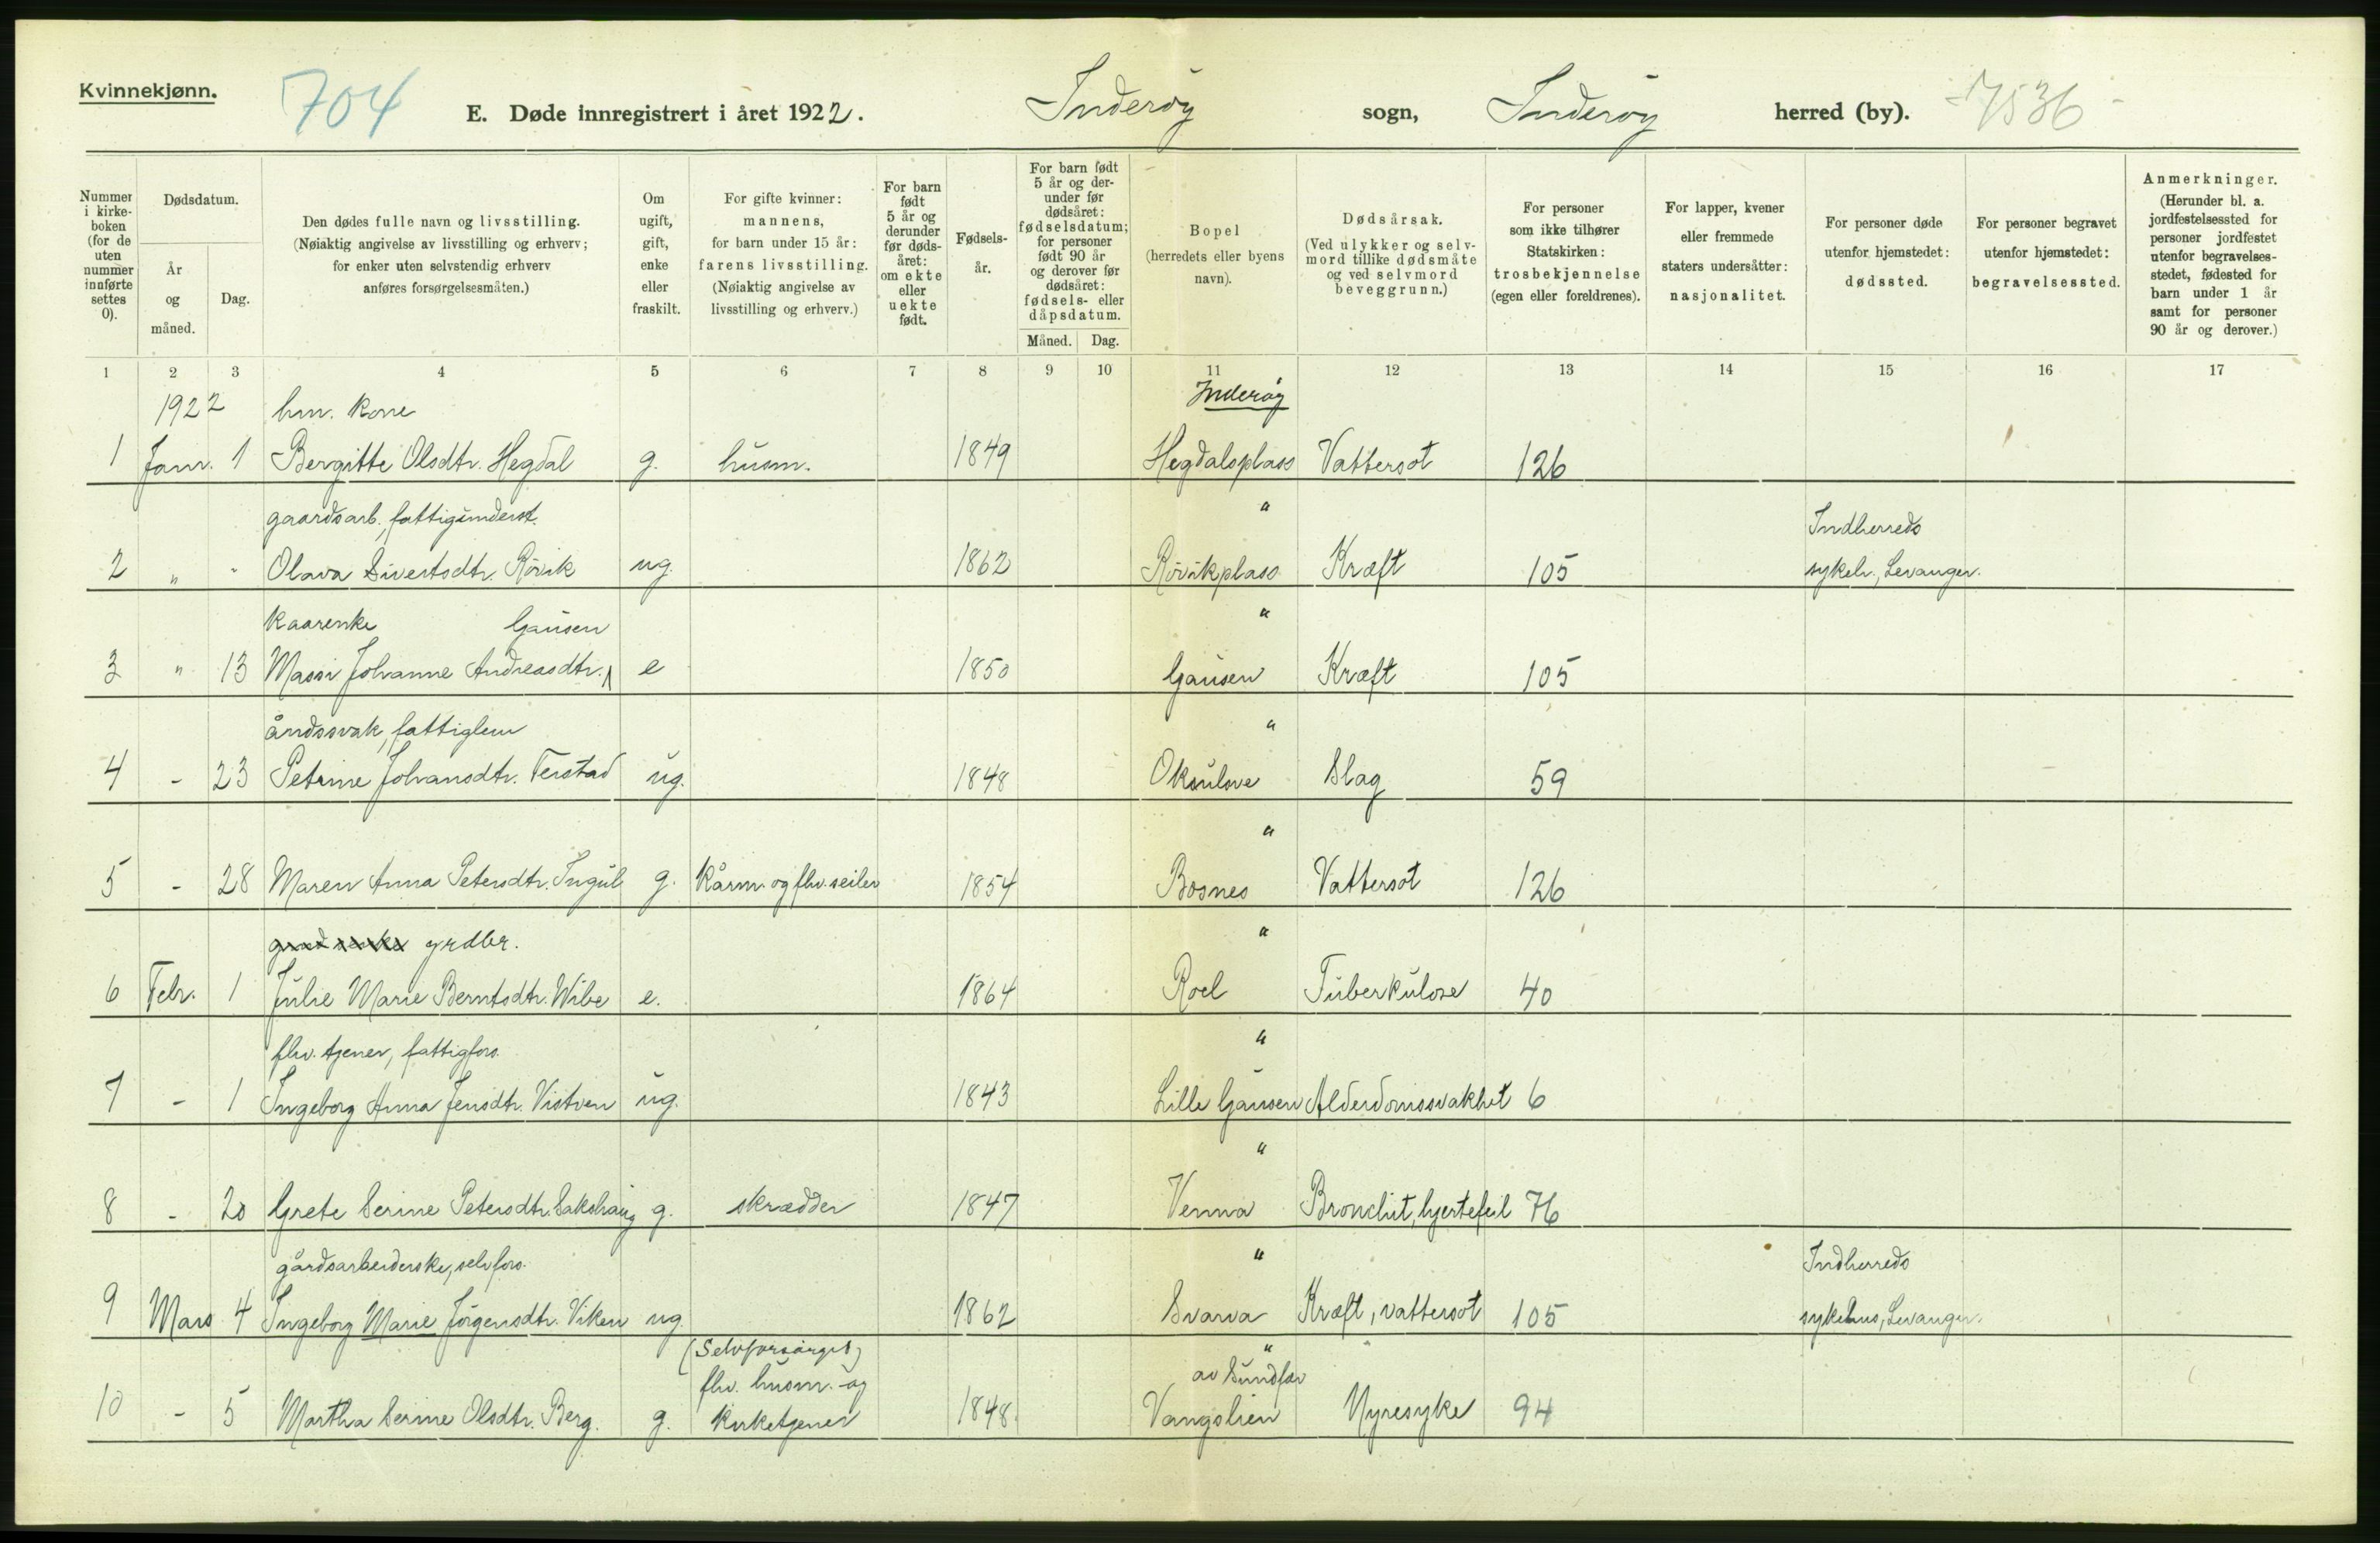 Kvinnekjønn.
704
E. Døde innregistrert i året 1922.
Inderøy sogn, Inderøy herred (by).
7536
Nummer i kirke-boken (for de uten nummer innførte settes 0).
Dødsdatum.
År og måned.
Dag.
Den dødes fulle navn og livsstilling.
(Nøiaktig angivelse av livsstilling og erhverv;
for enker uten selvstendig erhverv
anføres forsørgelsesmåten.)
Om ugift, gift, enke eller fraskilt.
For gifte kvinner:
mannens,
for barn under 15 år:
farens livsstilling.
(Nøiaktig angivelse av
livsstilling og erhverv.)
For barn født 5 år og derunder før døds-året: om ekte eller uekte født.
Fødsels-år.
For barn født 5 år og der-under før dødsåret: fødselsdatum; for personer født 90 år og derover før dødsåret: fødsels- eller dåpsdatum.
Måned.
Dag.
Bopel
(herredets eller byens
navn).
Dødsårsak.
(Ved ulykker og selv-
mord tillike dødsmåte
og ved selvmord
beveggrunn.)
For personer
som ikke tilhører
Statskirken:
trosbekjennelse
(egen eller foreldrenes).
For lapper, kvener
eller fremmede
staters undersåtter:
nasjonalitet.
For personer døde
utenfor hjemstedet:
dødssted.
For personer begravet
utenfor hjemstedet:
begravelsessted.
Anmerkninger.
(Herunder bl. a.
jordfestelsessted for
personer jordfestet
utenfor begravelses-
stedet, fødested for
barn under 1 år
samt for personer
90 år og derover.)
1 2 3 4 5 6 7 8 9 10 11 12 13 14 15 16 17
1922 hm. kone Inderøy
1 Janr. 1 Bergitte Olsdtr. Hegdal g. husm. 1849 Hegdalsplass Vattersot 126
gaardsarb., fattigunderst. " Indherreds
2 " " Olava Sivertsdtr. Rövik ug. 1862 Rövikplass Kræft 105 sykeh., Levanger.
Kaarenke Gausen "
3 " 13 Massi Johanne Andreasdtr. e 1850 Gausen Kræft 105
åndssvak, fattiglem "
4 - 23 Petrine Johansdtr. Terstad ug. 1848 Slag 59
"
5 - 28 Maren Anna Petersdtr. Ingul g. Kårm. og fhv. seiler 1854 Bosnes Vattersot 126
grdbr. "
6 Febr. 1 Julie Marie Berntsdtr. Wibe e. 1864 Roel Tuberkulose 40
fhv. tjener, fattigfors. "
7 - 1 Ingeborg Anna Jensdtr. Vistven ug. 1843 Lille Gausen Alderdomssvakhet 6
"
8 - 20 Grete Serine Petersdtr. Sakshaug g. skrædder 1847 Venna Bronchit, hjertefeil 76
gårdsarbeiderske, selvfors. " Indherreds
9 Mars 4 Ingeborg Marie Jörgensdtr. Viken ug. 1862 Svarva Kræft, vattersot 105 sykehus, Levanger.
(Selvforsörget) "
fhv. husm. og av Sundfær
10 - 5 Martha Serine Olsdtr. Berg. g. kirketjener 1848. Vangslien Nyresyke 94